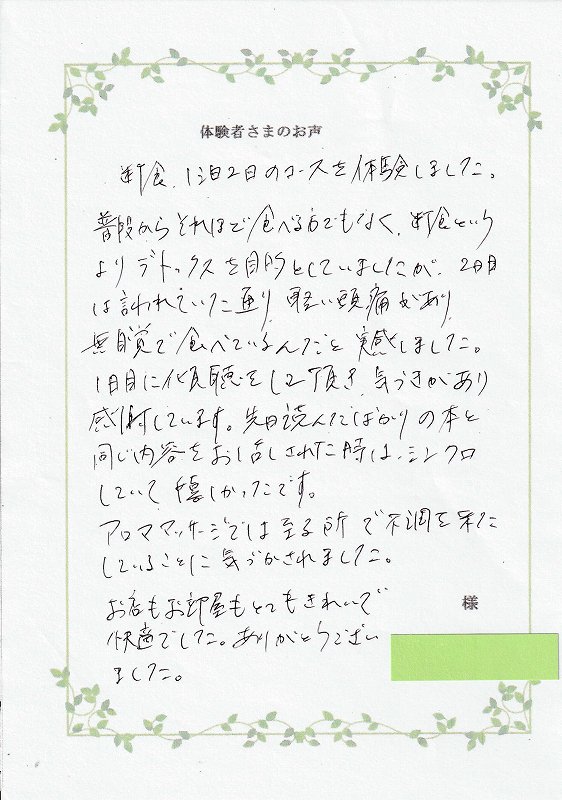 体験者さまのお声
断食、1泊2日のコースを体験しました。
普段からそれほど食べる方でもなく、断食という
よりデトックスを目的としていましたが、2日目
は言われていた通り、軽い頭痛があり、
無自覚で食べているんだと実感しました。
1日目に傾聴をして頂き、気づきがあり
感謝しています。先日読んだばかりの本と
同じ内容をお話しされた時は、シンクロ
していて嬉しかったです。
アロママッサージでは至る所で不調を来た
していることに気づかされました。
お店もお部屋もとてもきれいで
快適でした。ありがとうござい
ました。
様